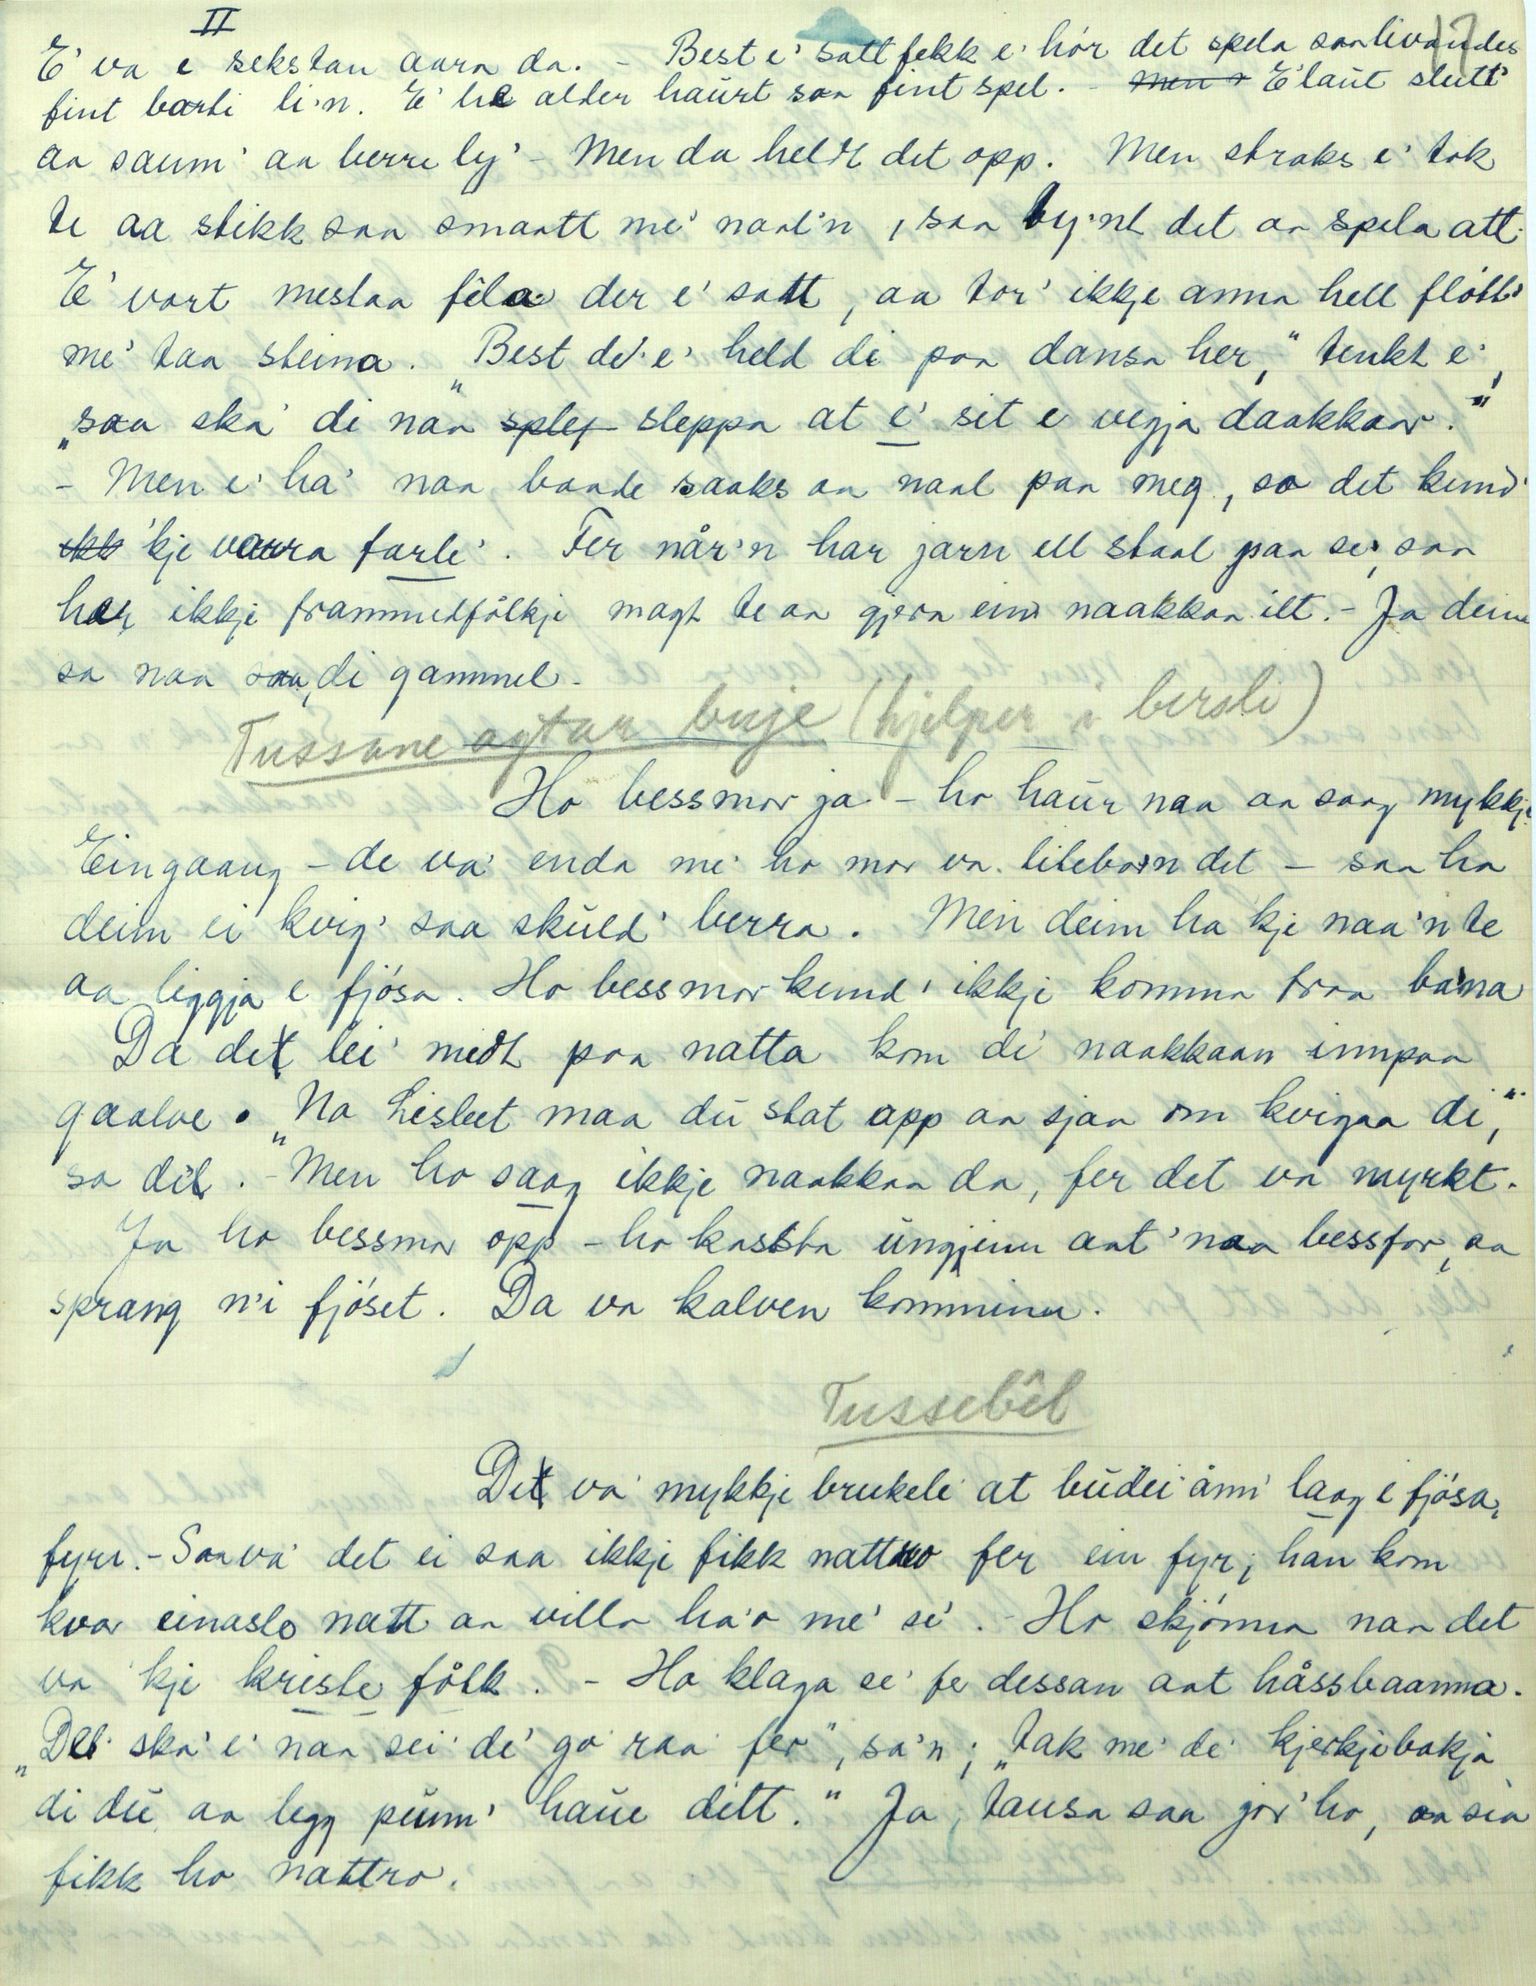 II
17
E' va e sekstan aara da. - Best e' satt fekk e' hór det spela saa livandes
fint borti li'n. E' he alder haürt saa fint spel. - men e E' laüt slutt'
aa saum' aa berre ly' - Men da heldt det opp. Men straks e' tok
te aa stikk saa smaatt me' naal'n, saa by'nt det aa spela att.
E' vart mestaa fêla der e' satt, aa tor' ikkje anna hell flótt'
me' taa steina. „Best de' e' held di paa dansa her," tenkt e',
„saa ska' di naa splep sleppa at e' sit e vegja daakkaar."
- Men e' ha' naa baade saaks aa naal paa meg, so det kund'
ikk 'kje vaara farle'. Fer når'n har jarn ell staal paa se', saa
har ikkje frammedfólkje magt te aa gjera ein naakkaa ilt. - Ja deim
sa naa saa, di gammel.
Tussane agtar buje (hjelper i bersli)
Ho bessmor ja - ho haür naa aa saag mykkje
Eingaang - de va' enda me' ho mor va litebarn det - saa ha
deim ei kvig' saa skuld' berra. Men deim ha kje naa'n te
aa liggja e fjósa. Ho bessmor kund' ikkje komma fraa bana
Da det lei' midt paa natta kom di naakkaan innpaa
gaalve. „Na Lisbet maa dü stat opp aa sjaa om kvigaa di,"
sa dil. - Men ho saag ikkje naakkaa da, fer det va myrkt.
Ja ho bessmor opp - ho kassta üngjenn aat 'naa bessfar, aa
sprang n'i fjóset. Da va kalven komminn.
Tussebêl
Det va' mykkje brukele' at büdei'ann' laag e fjósa,
fyru. - Saa va' det ei saa ikkje fikk nattro fer ein fyr; han kom
kvar einaste natt aa villa ha'o me' se'. - Ho skjónna naa det
va 'kje kriste fólk. - Ho klaga se' fe dessan aat håssbaanna.
„Det ska' e' naa sei' de' go' raa fer", sa'n; „tak me' de' kjerkjebokja
di dü aa legg pünn' haüe ditt." Ja, tausa saa gor' ho, aa sia
fikk ho nattro.